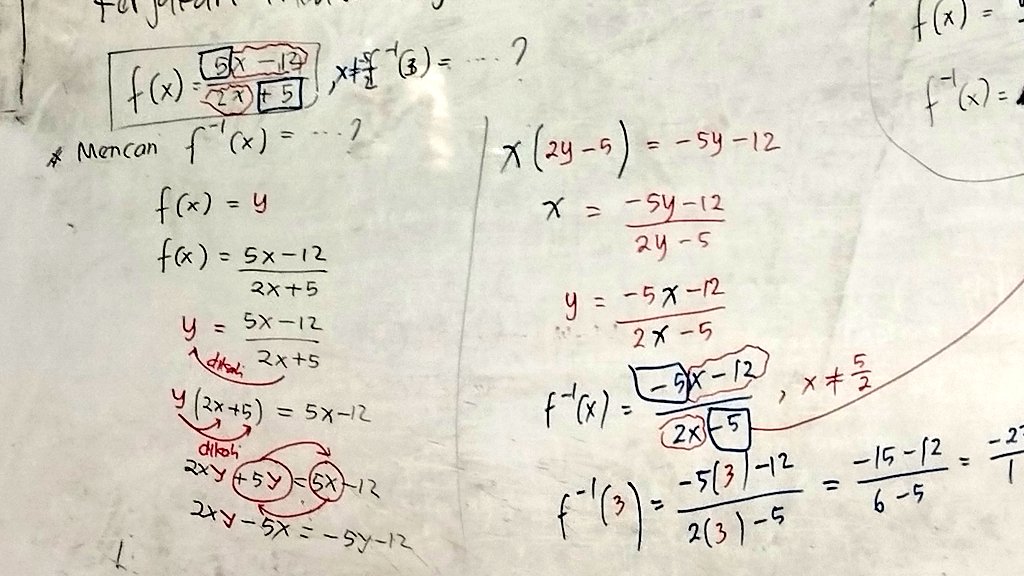 f(x) = (5x - 12)/(2x + 5), x ≠ -5/2 f⁻¹(3) = .... ?
* Mencari f⁻¹(x) = .... ?
f(x) = y
f(x) = (5x - 12)/(2x + 5)
y = (5x - 12)/(2x + 5)
dikali
y(2x+5) = 5x - 12
dikali
2xy + 5y = 5x - 12
2xy - 5x = -5y - 12
x(2y - 5) = -5y - 12
x = (-5y - 12)/(2y - 5)
y = (-5x - 12)/(2x - 5)
f⁻¹(x) = (-5x - 12)/(2x - 5), x ≠ 5/2
f⁻¹(3) = (-5(3) - 12)/(2(3) - 5) = (-15 - 12)/(6 - 5) =
f(x) =
f⁻¹(x) =